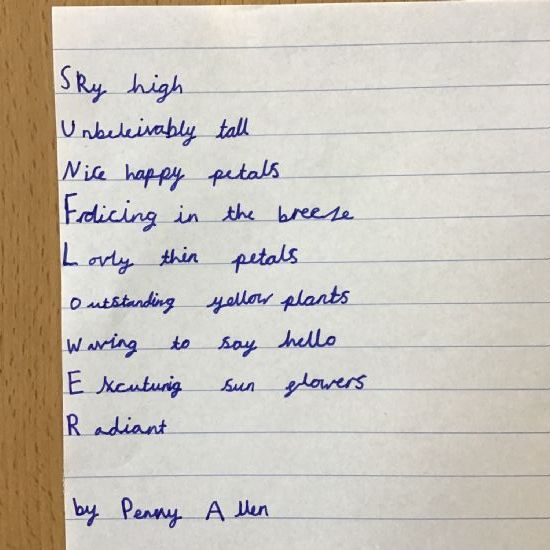 Sky high
Unbeleivably tall
Nice happy petals
Frolicing in the breeze
Lovly thin petals
outstanding yellow plants
Waving to say hello
sun glowers
Radiant
by Penny Allen